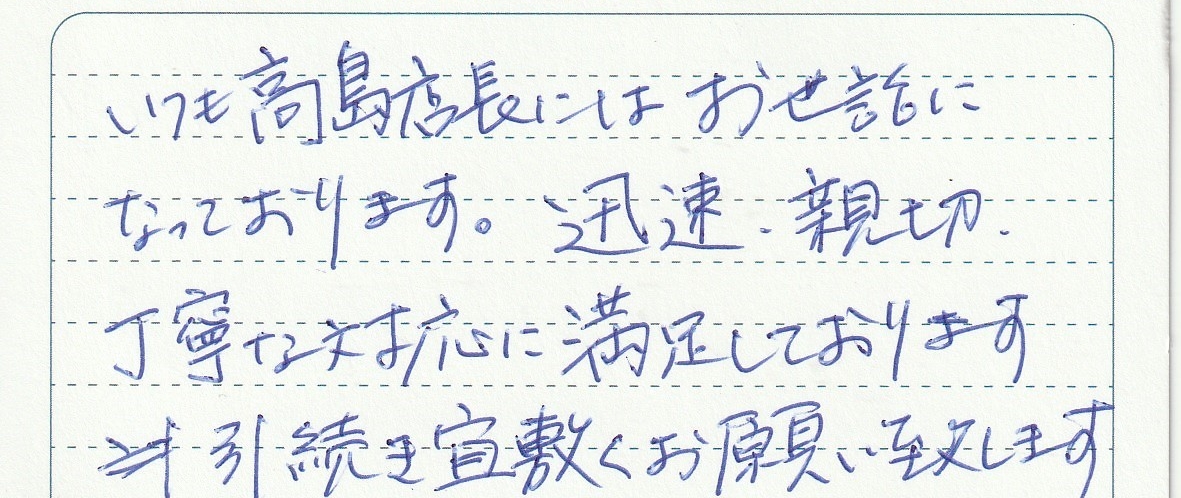 いつも高島店長にはお世話に
なっております。迅速、親切、
丁寧な対応に満足しております
引続き宜敷くお願い致します